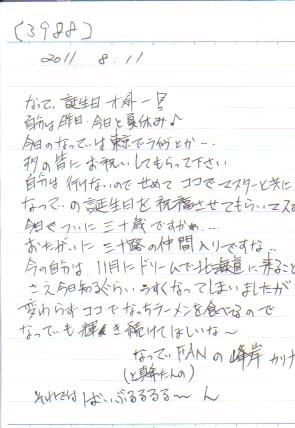 [3988]
2011 8.11
なっち、誕生日オメー!!
自分は昨日・今日と夏休み♪
今日のなっちは東京でライヴとか…
多の皆にお祝いしてもらって下さい
自分は行けないのでせめてココでマスターと共に
なっちの誕生日を祝福させてもらいマス
今日でついに三十歳ですかぁ…
おたがいに三十路の仲間入りですな…
今の自分は、11月にドリームで北海道に来ること
さえ今日知るぐらいうすくなってしまいましたが
変わらずココでなっちラーメンを食べるので
なっちも輝き続けてほしいな〜
なっちFANの峰岸
(と真希たんの)
それでは ばいぶるるるる〜ん